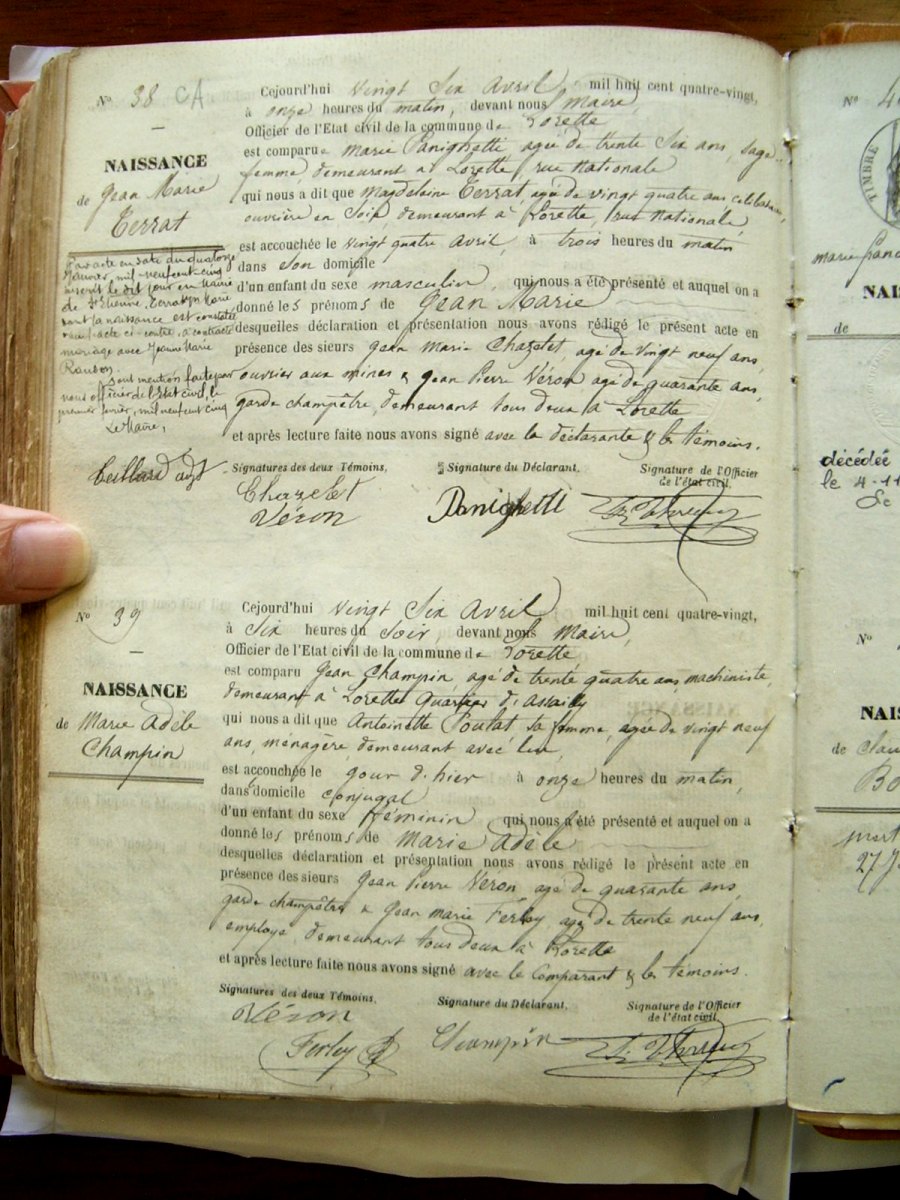 N° 38 CA
NAISSANCE
de Jean Marie
Terrat
Par acte en date du quatorze
Janvier, mil neufcent cinq
inscrit le dit jour en Mairie
de St Etienne, Terrat Jean Marie
dont la naissance est constatée
dans l'acte ci-contre, a contracté
mariage avec Jeanne Marie
dont mention faite par
nous officier de l'Etat civil, le
premier février, mil neufcent cinq
Le Maire,
Cejourd'hui vingt Six Avril mil huit cent quatre-vingt,
à onze heures du matin, devant nous Maire
Officier de l'Etat civil de la commune de Lorette
est comparue Marie Panighetti agée de trente Six ans, Sage-
femme, demeurant à Lorette, rue Nationale
qui nous a dit que Magdeleine Terrat, agée de vingt quatre ans célibataire,
ouvrière en Soie, demeurant à Lorette, rue Nationale,
est accouchée le vingt quatre Avril, à trois heures du matin
dans Son domicile
d'un enfant du sexe masculin, qui nous a été présenté et auquel on a
donné les prénoms de Jean Marie
desquelles déclaration et présentation nous avons rédigé le présent acte en
présence des sieurs Jean Marie Chazelet, agé de vingt neuf ans,
ouvrier aux mines & Jean Pierre Véron agé de quarante ans,
garde champêtre, demeurant tous deux à Lorette
et après lecture faite nous avons signé avec la déclarante & les témoins.
Signatures des deux Témoins, Signature du Déclarant, Signature de l'Officier
de l'état civil,
Chazelet
Véron Panighetti
N° 39
NAISSANCE
de Marie Adèle
Champin
Cejourd'hui vingt Six Avril mil huit cent quatre-vingt,
à Six heures du Soir, devant nous Maire,
Officier de l'Etat civil de la commune de Lorette
est comparu Jean Champin agé de trente quatre ans, machiniste,
demeurant à Lorette Quartier d'Assailly
qui nous a dit que Antoinette Poulat, Sa femme, agée de vingt neuf
ans, ménagère, demeurant avec lui
est accouchée le jour d'hier à onze heures du matin,
dans domicile conjugal
d'un enfant du sexe féminin qui nous a été présenté et auquel on a
donné les prénoms de Marie Adèle
desquelles déclaration et présentation nous avons rédigé le présent acte en
présence des sieurs Jean Pierre Véron agé de quarante ans,
garde champêtre & Jean Marie Ferley, agé de trente neuf ans,
employé, demeurant tous deux à Lorette
et après lecture faite nous avons signé avec le Comparant & les témoins.
Signatures des deux Témoins, Signature du Déclarant, Signature de l'Officier
de l'état civil,
Véron
Ferley Champin
N° 4
TIMBRE
NAI
de
décédée
le 4-11
N°
NAIS
de
27 J